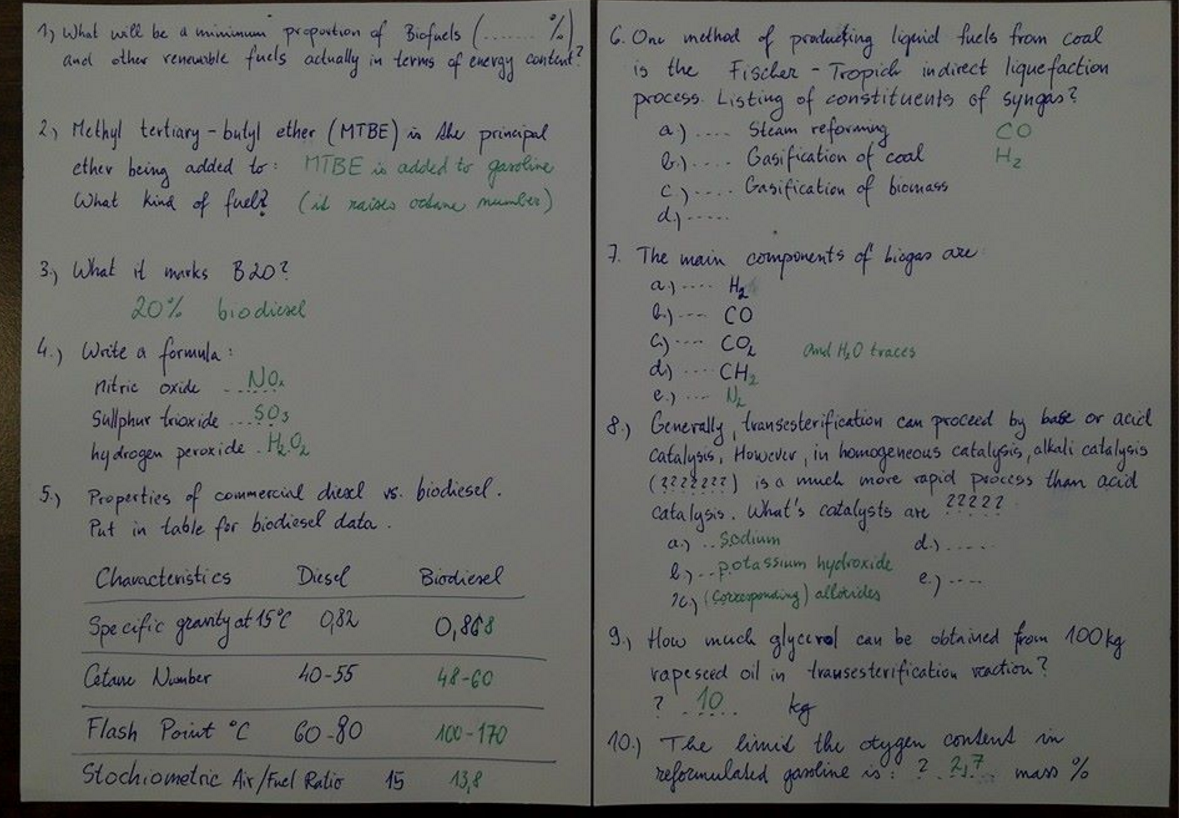 1) What will be a minimum proportion of Biofuels (....... %)
and other renewable fuels actually in terms of energy content?
2.) Methyl tertiary - butyl ether (MTBE) is the principal
ether being added to: MTBE is added to gasoline
What kind of fuel? (it raises octane number)
3.) What it marks B20?
20% biodiesel
4.) Write a formula:
nitric oxide ..NOx
Sulphur trioxide ....SO3
hydrogen peroxide .H2O2
5.) Properties of commercial diesel vs. biodiesel.
Put in table for biodiesel data.
Characteristics Diesel Biodiesel
Specific gravity at 15°C 0,82 0,868
Cetane Number 40-55 48-60
Flash Point °C 60-80 100-170
Stochiometric Air/Fuel Ratio 15 13,8
6. One method of producting liquid fuels from coal
is the Fischer - Tropich indirect liquefaction
process. Listing of constituents of syngas?
a.) .... Steam reforming CO
b.) .... Gasification of coal H2
c.) .... Gasification of biomass
d.) .....
7. The main components of biogas are
a.) .... H2
b.) .... CO
c.) .... CO2 and H2O traces
d.) .... CH2
e.) .... N2
8.) Generally, transesterification can proceed by base or acid
catalysis, However, in homogeneous catalysis, alkali catalysis
(???????) is a much more rapid process than acid
catalysis. What's catalysts are ?????
a.) ..sodium d.) .....
b.) ..potassium hydroxide e.) ....
c.) (corresponding) alloxides
9.) How much glycerol can be obtained from 100kg
rapeseed oil in transesterification reaction?
? ..10.... kg
10.) The limid the oxygen content in
reformulated gasoline is: ? .2,7.. mass %